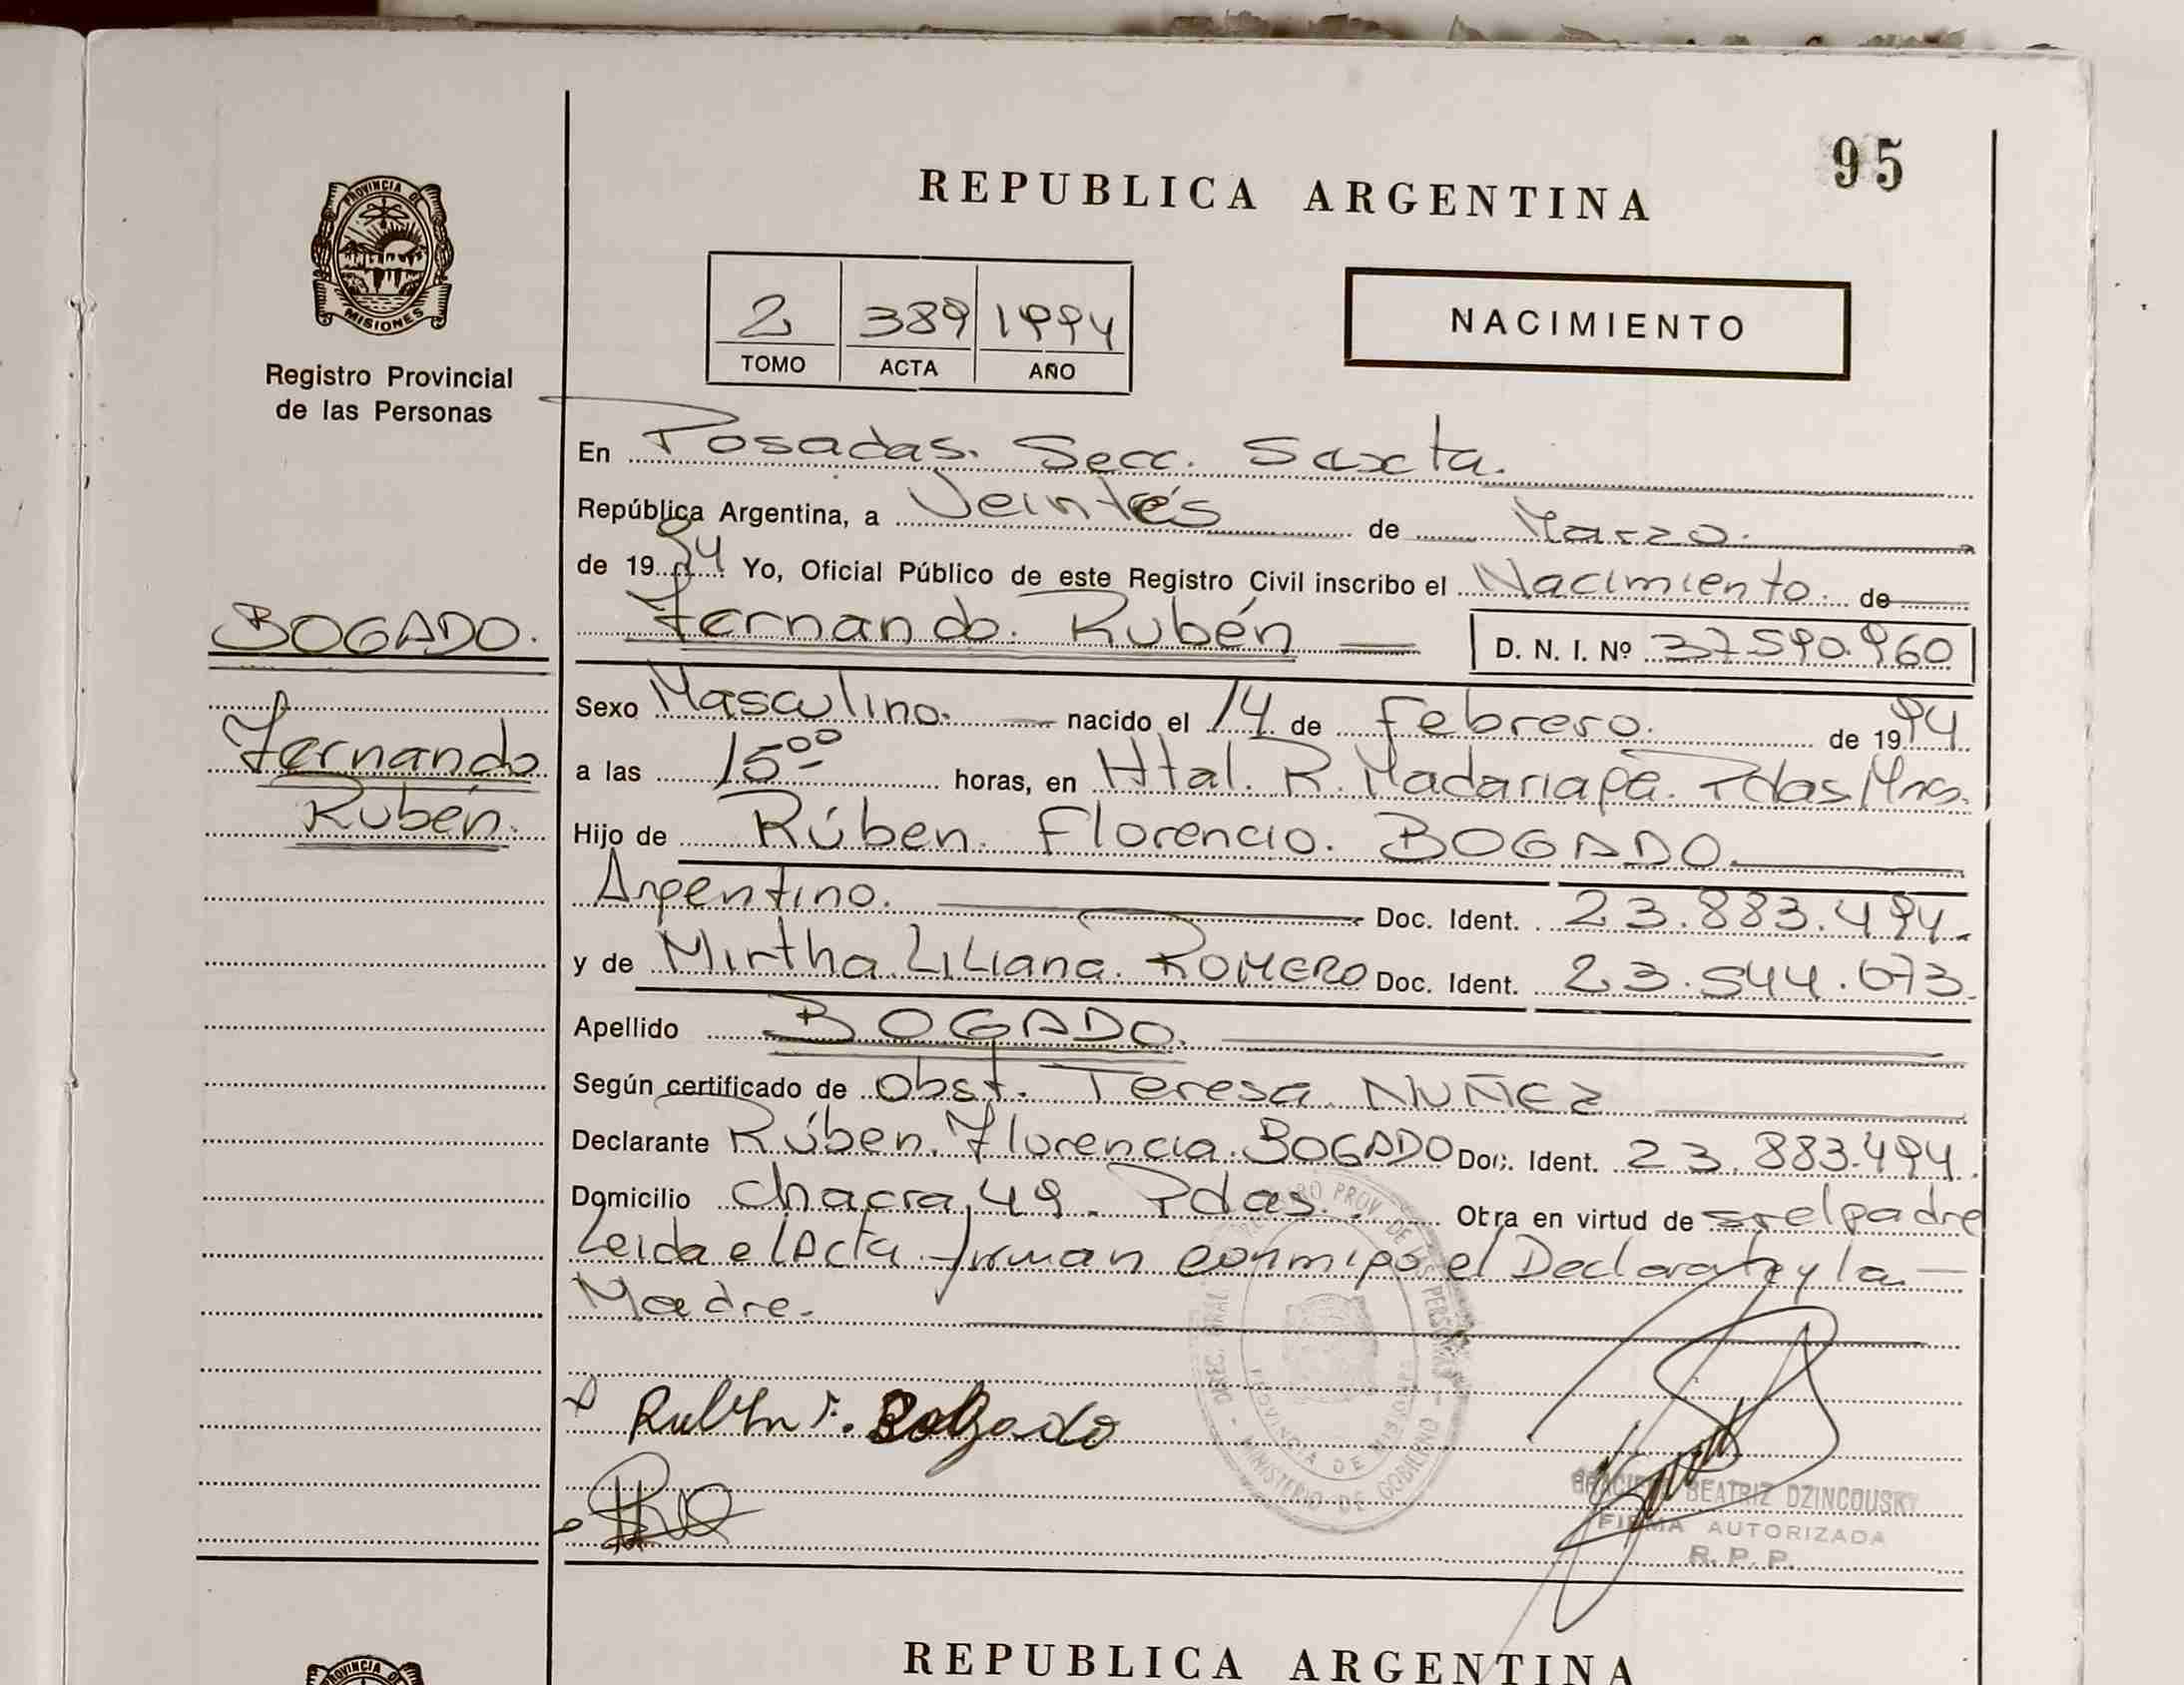 95
REPUBLICA ARGENTINA
PROVINCIA DE
MISIONES
Registro Provincial
de las Personas
2 389 1994
TOMO ACTA AÑO
NACIMIENTO
En Posadas. Secc. Sexta.
República Argentina, a Veintrés de Marzo.
de 1994 Yo, Oficial Público de este Registro Civil inscribo el Nacimiento de
BOGADO.
Fernando Rubén
Fernando. Rubén D. N. I. Nº 37.590.960
Sexo Masculino. nacido el 14 de Febrero. de 1994
a las 15 00 horas, en Htal. R. Madariaga. Pdas Mns.
Hijo de Rúben. Florencio. BOGADO.
Argentino. Doc. Ident. 23.883.494.
y de Mirtha Liliana. ROMERO Doc. Ident. 23.544.073.
Apellido BOGADO.
Según certificado de Obst. Teresa NUÑEZ
Declarante Rúben. Florencio. BOGADO Doc. Ident. 23.883.494.
Domicilio chacra 49. Pdas. Otra en virtud de srelpadre
Leida el Acta firman conmigo el Declarate y la
Madre.
Ruben F. Bogado
MINISTERIO DE GOBIERNO
PROVINCIA DE MISIONES
BEATRIZ DZINCOUSKY
FIRMA AUTORIZADA
R. P. P.
REPUBLICA ARGENTINA
PROVINCIA DE